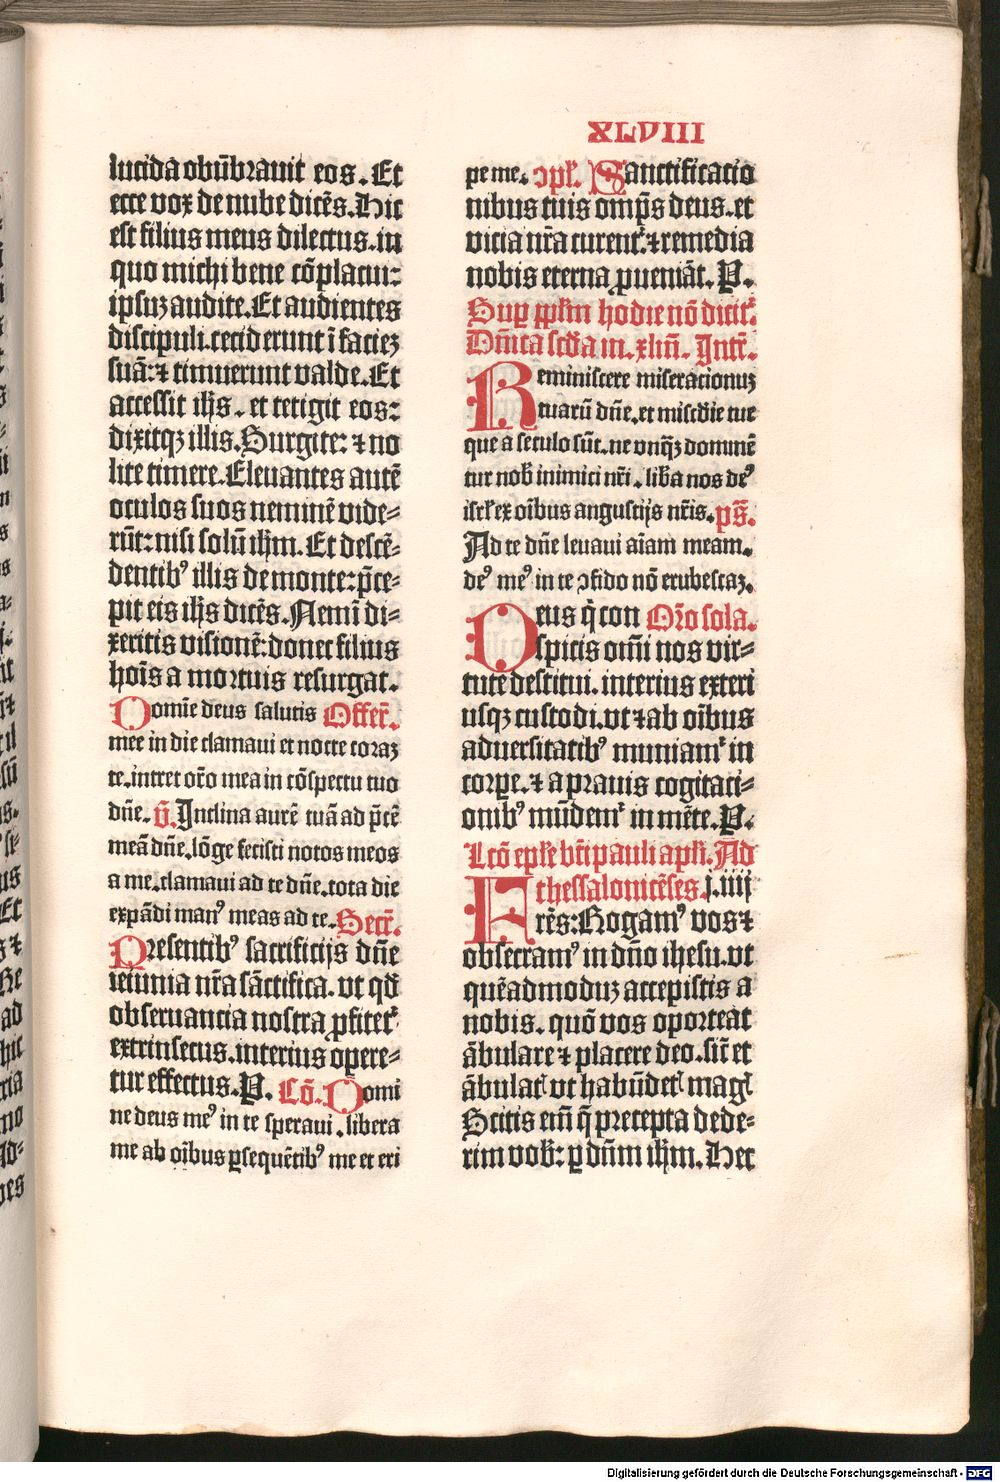 XLVIII
lucida obũbrauit eos. Et
ecce vox de nube dicẽs. Hic
est filius meus dilectus. in
quo michi bene cõplacui:
ipsuꝫ audite. Et audientes
discipuli. ceciderunt ĩ facieꝫ
suã: ⁊ timuerunt valde. Et
accessit ihs̄. et tetigit eos:
dixitqꝫ illis. Surgite: ⁊ no
lite timere. Eleuantes autẽ
oculos suos neminẽ vide⸗
rũt: nisi solũ ihm̄. Et descẽ⸗
dentibꝰ illis de monte: p̄ce⸗
pit eis ihs̄ dicẽs. Nemĩ di⸗
xeritis visionẽ: donec filius
hoĩs a mortuis resurgat.
Domĩe deus salutis Offer̃.
mee in die clamaui et nocte coraꝫ
te. intret or̃o mea in cõspectu tuo
dñe. v̄. Inclina aurẽ tuã ad p̄cẽ
meã dñe. lõge fecisti notos meos
a me. clamaui ad te dñe. tota die
expãdi manꝰ meas ad te. Secr̃.
Presentibꝰ sacrificijs dñe
ieiunia nr̃a sãctifica. vt qd̃
obseruancia nostra ꝓfitet᷑
extrinsecus. interius opere⸗
tur effectus. P. Cõ. Domi
ne deus meꝰ in te speraui. libera
me ab oĩbus ꝑsequẽtibꝰ me et eri
pe me. ꝯpl̃. Sanctificatio
nibus tuis omp̃s deus. et
vicia nr̃a curent᷑. ⁊ remedia
nobis eterna ꝓueniãt. P.
Suꝑ ppl̃m hodie nõ dicit᷑.
Dñica scd̃a in. xl. Intr̃.
Reminiscere miseracionuꝫ
tuarũ dñe. et miscd̃ie tue
que a seculo sũt. ne vnqꝫ̃ dominẽ
tur nob̃ inimici nr̃i. lib̃a nos deꝰ
isrl̃ ex oĩbus angustijs nr̃is. ps̃.
Ad te dñe leuaui aĩam meam.
deꝰ meꝰ in te ꝯfido nõ erubescaꝫ.
Deus q̃ con Or̃o sola.
spicis om̃i nos vir⸗
tute destitui. interius exteri
usqꝫ custodi. vt ⁊ ab oĩbus
aduersitatibꝰ muniam᷑ in
corpe. ⁊ a prauis cogitaci⸗
onibꝰ mũdem᷑ in mẽte. P.
Lcõ epl̃e bt̃i pauli apl̃i. Ad
thessalonicẽses. j. iiij
Fr̃es: Rogamꝰ vos ⁊
obsecramꝰ in dño ihesu. vt
quẽadmoduꝫ accepistis a
nobis. quõ vos oporteat
ãbulare ⁊ placere deo. sic̃ et
ãbulat̃ vt habũdet̃ mag̃
Scitis em̃ q̃ precepta dede⸗
rim vob̃: ꝑ dñm ihm̄. Hec
Digitalisierung gefördert durch die Deutsche Forschungsgemeinschaft - DFG